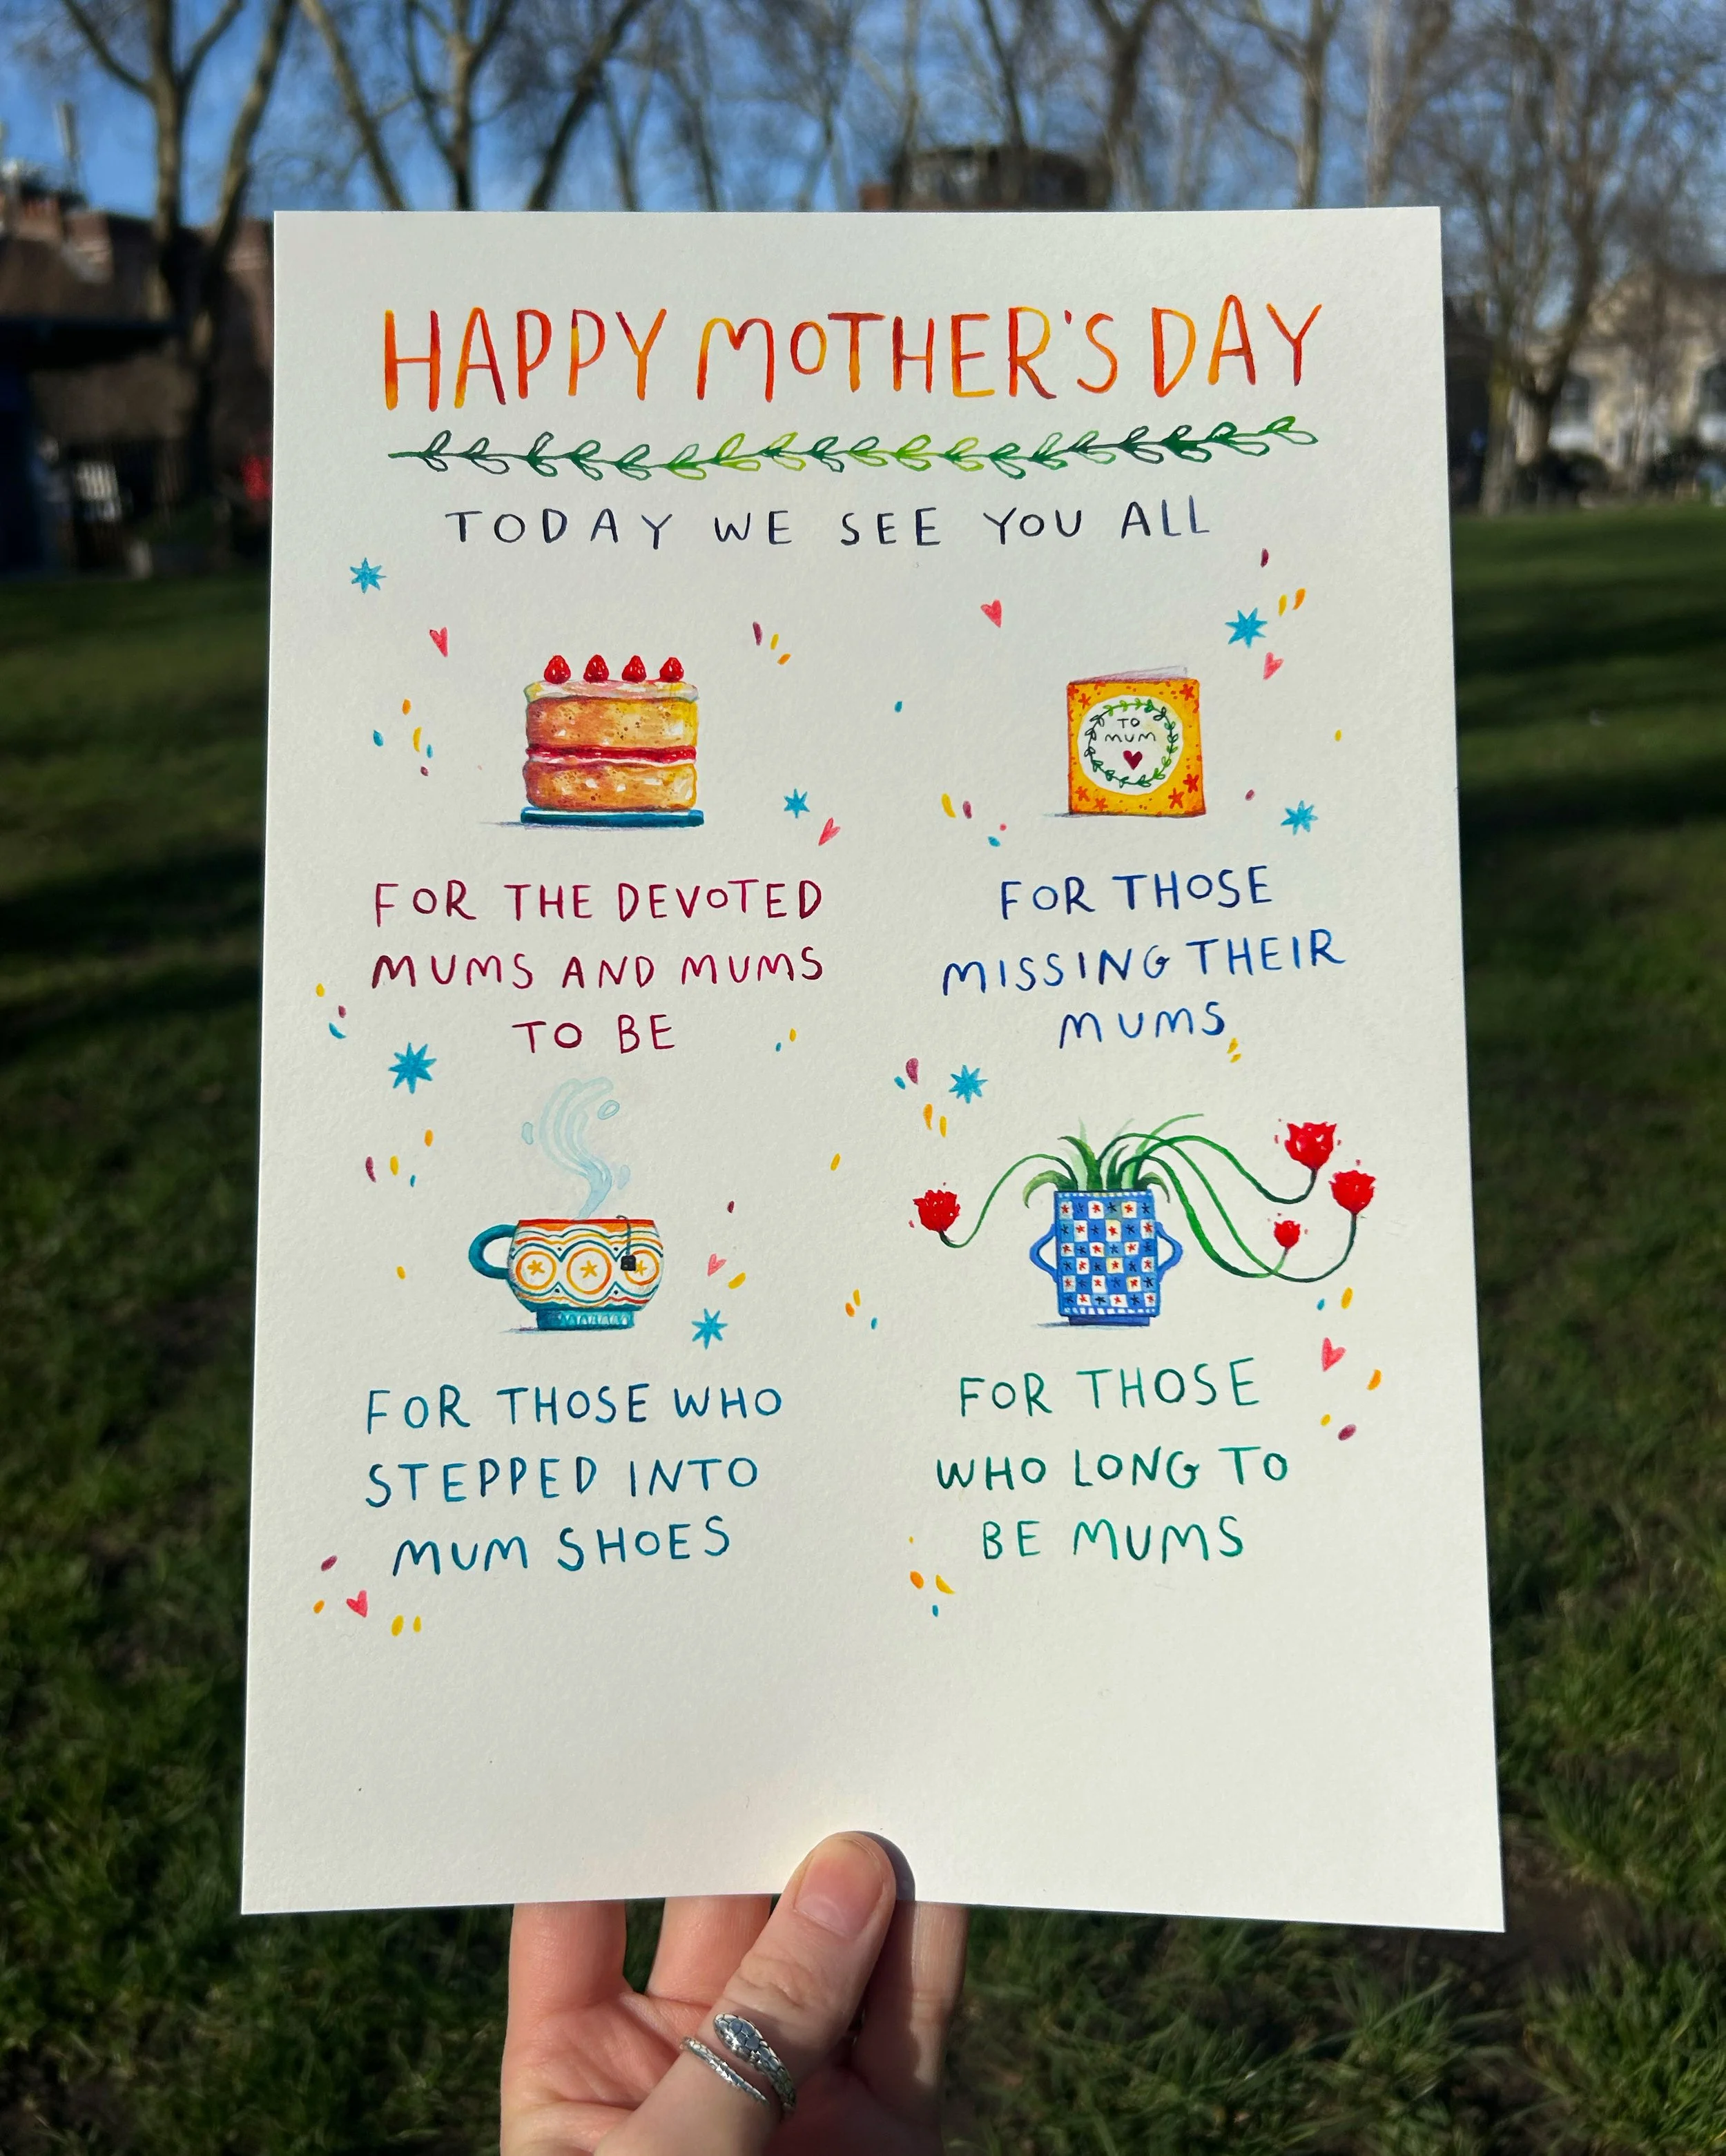 HAPPY MOTHER'S DAY
TODAY WE SEE YOU ALL
TO
MUM
FOR THE DEVOTED
MUMS AND MUMS
TO BE
FOR THOSE
MISSING THEIR
MUMS
FOR THOSE WHO
STEPPED INTO
MUM SHOES
FOR THOSE
WHO LONG TO
BE MUMS